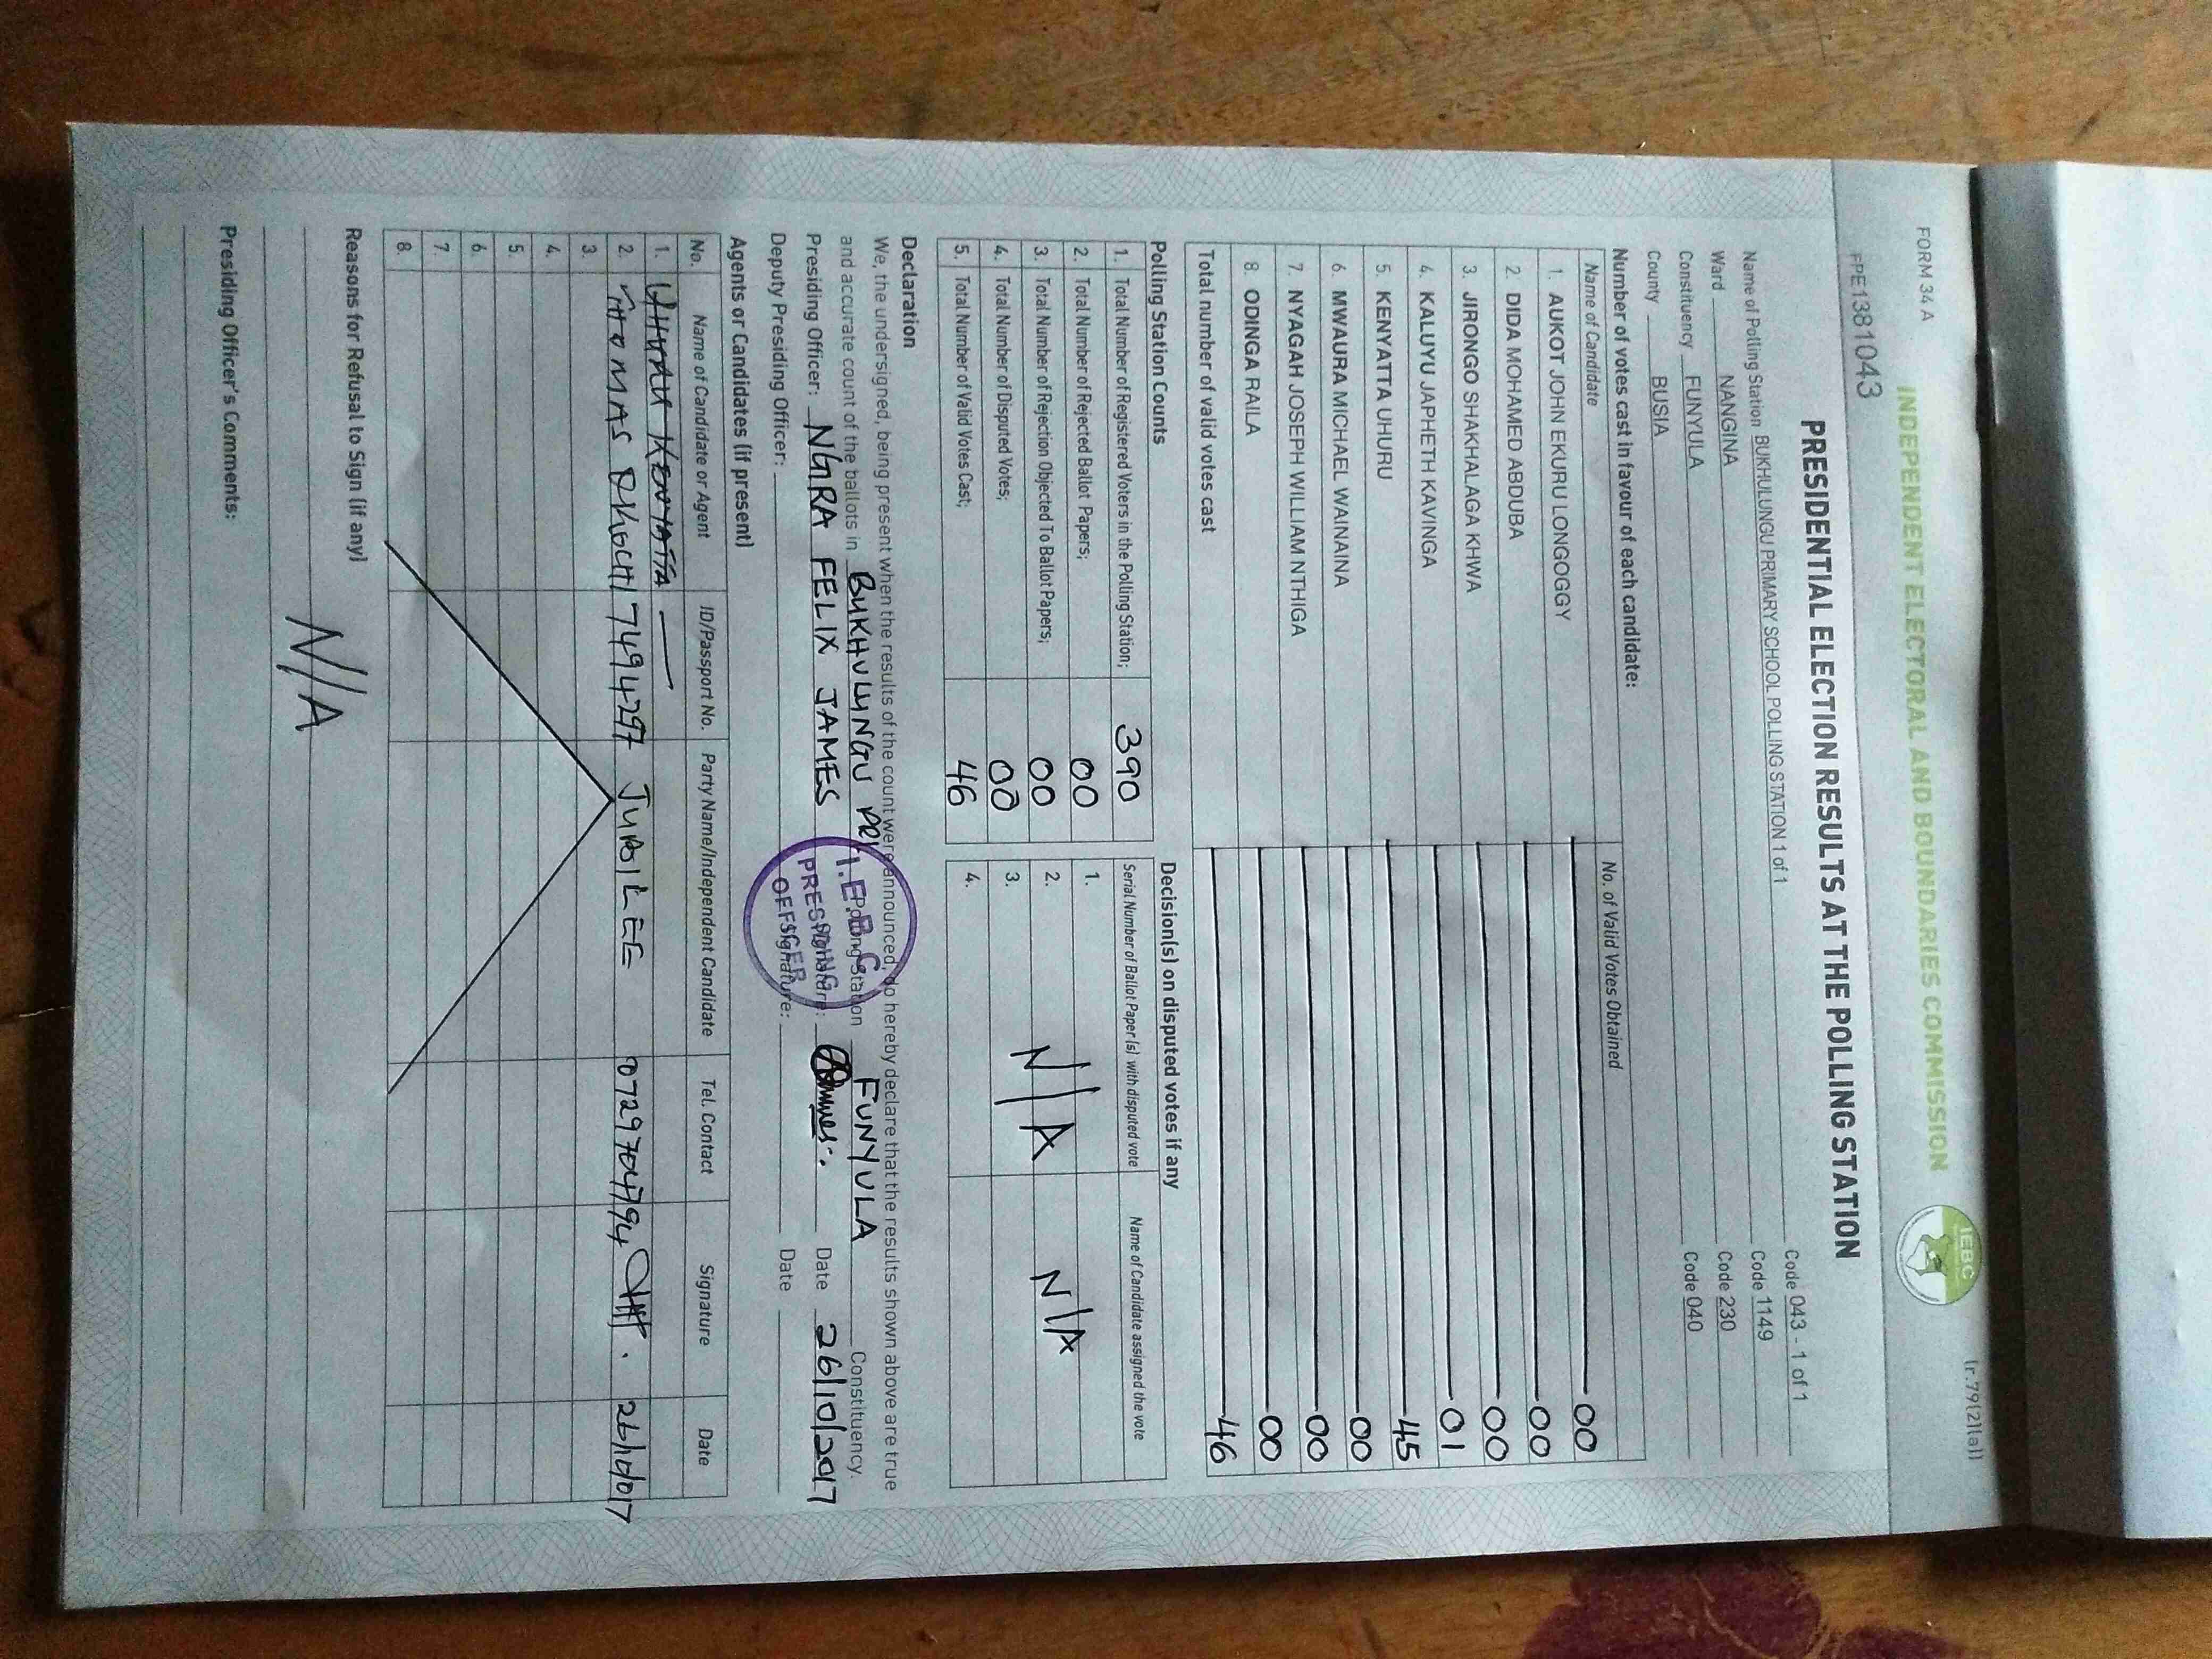 FORM 34 A
(r.79(2)(a))
INDEPENDENT ELECTORAL AND BOUNDARIES COMMISSION
IEBC
PE1381043
PRESIDENTIAL ELECTION RESULTS AT THE POLLING STATION
Name of Polling Station BUKHULUNGU PRIMARY SCHOOL POLLING STATION 1 of 1 Code 043 - 1 of 1
Ward NANGINA Code 1149
Constituency FUNYULA Code 230
County BUSIA Code 040
Number of votes cast in favour of each candidate:
Name of Candidate No. of Valid Votes Obtained
1. AUKOT JOHN EKURU LONGOGGY 00
2. DIDA MOHAMED ABDUBA 00
3. JIRONGO SHAKHALAGA KHWA 00
4. KALUYU JAPHETH KAVINGA 01
5. KENYATTA UHURU 45
6. MWAURA MICHAEL WAINAINA 00
7. NYAGAH JOSEPH WILLIAM NTHIGA 00
8. ODINGA RAILA 00
Total number of valid votes cast 46
Polling Station Counts
1. Total Number of Registered Voters in the Polling Station; 390
2. Total Number of Rejected Ballot Papers; 00
3. Total Number of Rejection Objected To Ballot Papers; 00
4. Total Number of Disputed Votes; 00
5. Total Number of Valid Votes Cast; 46
Decision(s) on disputed votes if any
Serial Number of Ballot Paper(s) with disputed vote Name of Candidate assigned the vote
1.
2. N/A N/A
3.
4.
Declaration
We, the undersigned, being present when the results of the count were announced, do hereby declare that the results shown above are true
and accurate count of the ballots in BUKHULUNGU PRI Polling Station FUNYULA Constituency.
Presiding Officer: NGIRA FELIX JAMES Signature: Date 26/10/2017
Deputy Presiding Officer: Signature: Date
I.E.B.C
PRESIDING
OFFICER
Agents or Candidates (if present)
No. Name of Candidate or Agent ID/Passport No. Party Name/Independent Candidate Tel. Contact Signature Date
1. UHURU KENYATTA
2. THOMAS OKOCHI 7494297 JUBILEE 0729704794 26/10/017
3.
4.
5.
6.
7.
8.
Reasons for Refusal to Sign (if any)
N/A
Presiding Officer's Comments: